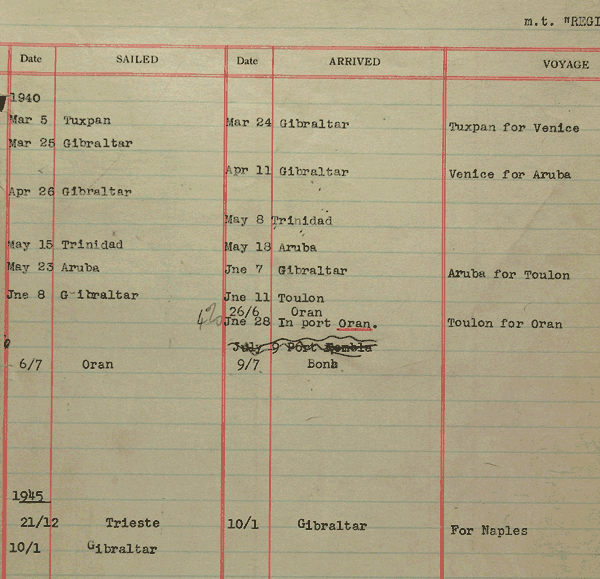 m.t. "REGI
Date SAILED Date ARRIVED VOYAGE
1940
Mar 5 Tuxpan Mar 24 Gibraltar Tuxpan for Venice
Mar 25 Gibraltar
Apr 11 Gibraltar Venice for Aruba
Apr 26 Gibraltar
May 8 Trinidad
May 15 Trinidad May 18 Aruba
May 23 Aruba Jne 7 Gibraltar Aruba for Toulon
Jne 8 Gibraltar Jne 11 Toulon
26/6 Oran
Jne 28 In port Oran. Toulon for Oran
July 9 Port Kembla
6/7 Oran 9/7 Bone
1945
21/12 Trieste 10/1 Gibraltar For Naples
10/1 Gibraltar